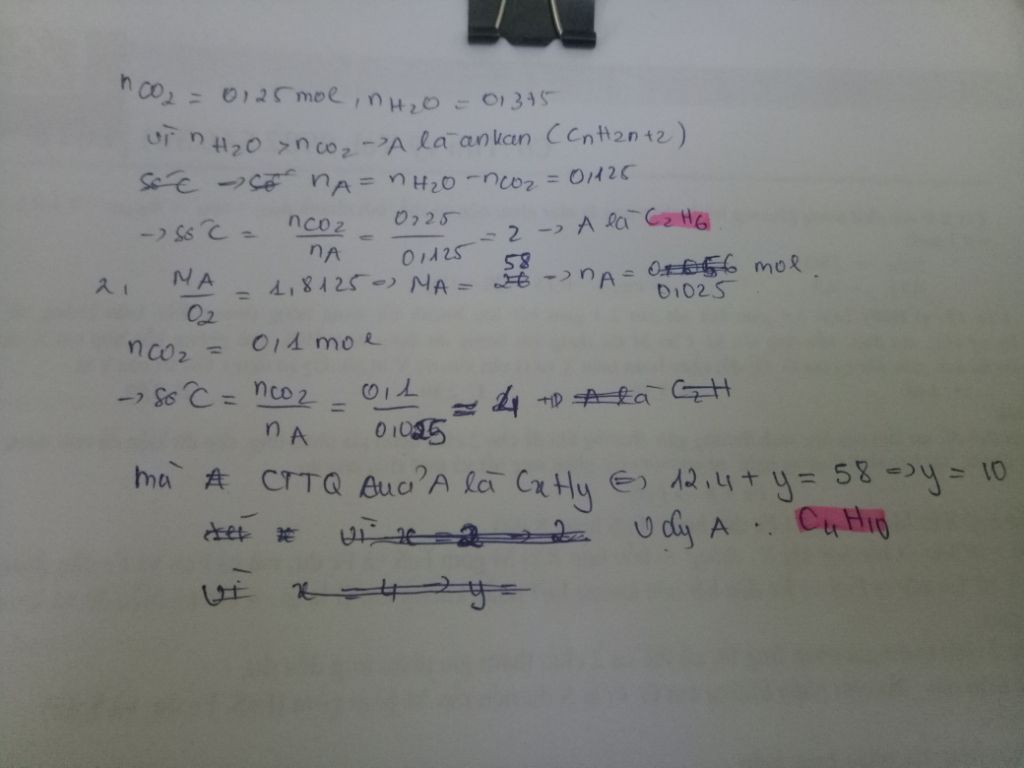 nCO2 = 0,25 mol, nH2O = 0,375
vì nH2O > nCO2 → A là ankan (CnH2n+2)
số C → số nA = nH2O - nCO2 = 0,125
→ số C = nCO2/nA = 0,25/0,125 = 2 → A là C2H6
2, MA/O2 = 1,8125 → MA = 58 → nA = 0,025 mol.
nCO2 = 0,1 mol
→ số C = nCO2/nA = 0,1/0,025 = 4 → A là C2H
mà A CTTQ của A là CxHy ⇔ 12.4 + y = 58 ⇒ y = 10
vì x = 2 → 2 Vậy A : C4H10
vì x = 4 → y =